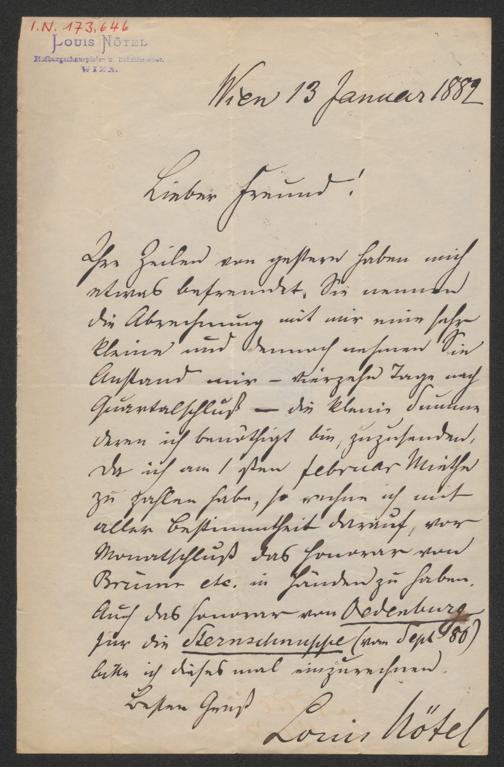 I.N. 173.646
Louis Nötel
Hofburgschauspieler u. Schriftsteller.
WIEN.
Wien 13 Januar 1882
Lieber Freund!
Ihre Zeilen von gestern haben mich
etwas befremdet. Sie nennen
die Abrechnung mit mir eine sehr
kleine und dennoch nehmen Sie
Anstand mir – vierzehn Tage nach
Quartalschluß – die kleine Summe
deren ich benöthigt bin, zuzusenden.
Da ich am 1sten Februar Miethe
zu zahlen habe, so rechne ich mit
aller Bestimmtheit darauf, vor
Monatschluß das Honorar von
Brünn etc. in Händen zu haben.
Auch das Honorar von Oedenburg
für die Sternschnuppe (vom Sept 80)
bitte ich dieses mal einzurechnen.
Besten Gruß
Louis Nötel